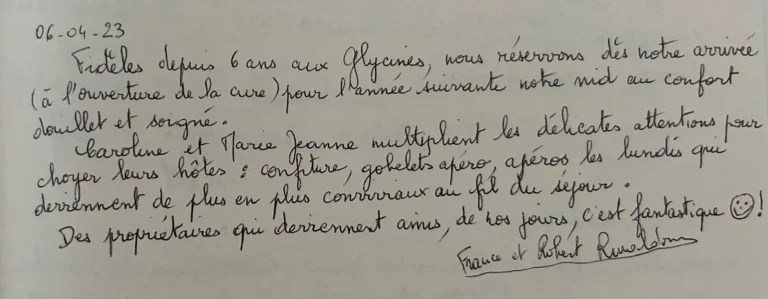 06-04-23
Fidèles depuis 6 ans aux Glycines, nous réservons dès notre arrivée
(à l'ouverture de la cure) pour l'année suivante notre nid au confort
douillet et soigné.
Caroline et Marie Jeanne multiplient les délicates attentions pour
choyer leurs hôtes : confiture, gobelets apéro, apéros les lundis qui
deviennent de plus en plus conviviaux au fil du séjour.
Des propriétaires qui deviennent amis, de nos jours, c'est fantastique ☺!
France et Robert